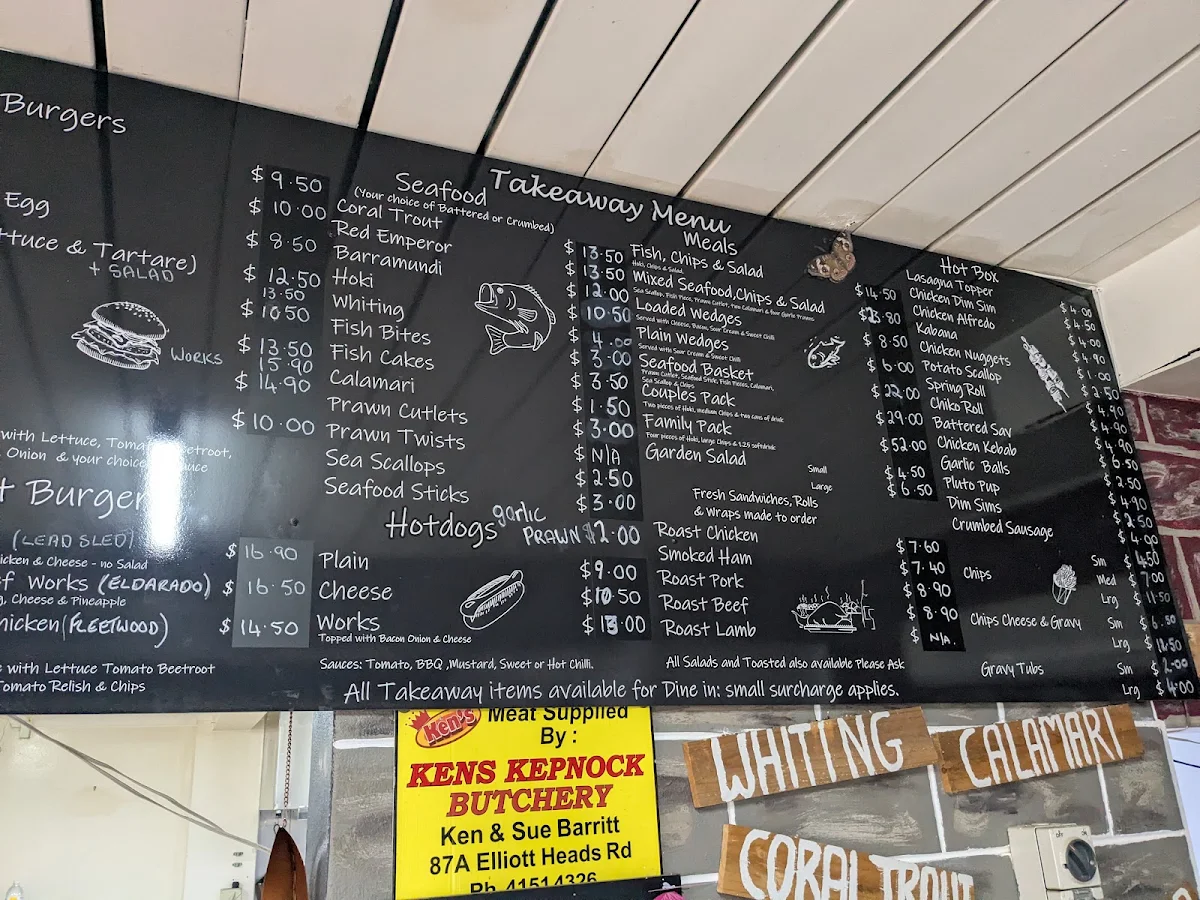 Burgers
Egg
ttuce & Tartare)
+ SALAD
Works
$ 9.50
$ 10.00
$ 8.50
$ 12.50
13.50
$ 10.50
$ 13.50
15.90
$ 14.90
$ 10.00
with Lettuce, Tomato, Beetroot,
Onion & your choice Sauce
t Burger
(LEAD SLED)
icken & Cheese - no Salad
ef Works (ELDARADO)
g, Cheese & Pineapple
hicken (FLEETWOOD)
$ 16.90
$ 16.50
$ 14.50
e with Lettuce Tomato Beetroot
Tomato Relish & Chips
Takeaway Menu
Seafood
(Your choice of Battered or Crumbed)
Coral Trout
Red Emperor
Barramundi
Hoki
Whiting
Fish Bites
Fish Cakes
Calamari
Prawn Cutlets
Prawn Twists
Sea Scallops
Seafood Sticks
$ 13.50
$ 13.50
$ 12.00
$ 10.50
$ 4.00
$ 3.00
$ 3.50
$ 1.50
$ 3.00
$ N/A
$ 2.50
$ 3.00
garlic
PRAWN $2.00
Hotdogs
Plain $9.00
Cheese $10.50
Works $13.00
Topped with Bacon Onion & Cheese
Sauces: Tomato, BBQ ,Mustard, Sweet or Hot Chilli.
Meals
Fish, Chips & Salad
Hoki, Chips & Salad
Mixed Seafood,Chips & Salad
Sea Scallop, Fish Piece, Prawn Cutlet, Two Calamari & four Garlic Prawns
Loaded Wedges
Served with Cheese, Bacon, Sour Cream & Sweet Chilli
Plain Wedges
Served with Sour Cream & Sweet Chilli
Seafood Basket
Prawn Cutlet, Seafood Stick, Fish Pieces, Calamari,
Sea Scallop & Chips
Couples Pack
Two pieces of Hoki, medium Chips & two cans of drink
Family Pack
Four pieces of Hoki, large Chips & 1.25 softdrink
Garden Salad
Small
Large
$14.50
$23.80
$ 8.50
$ 6.00
$ 22.00
$ 29.00
$52.00
$ 4.50
$ 6.50
Fresh Sandwiches,Rolls
& Wraps made to order
Roast Chicken $ 7.60
Smoked Ham $ 7.40
Roast Pork $ 8.90
Roast Beef $ 8.90
Roast Lamb $ N/A.
All Salads and Toasted also available Please Ask
Hot Box
Lasagna Topper
Chicken Dim Sim
Chicken Alfredo
Kabana
Chicken Nuggets
Potato Scallop
Spring Roll
Chiko Roll
Battered Sav
Chicken Kebab
Garlic Balls
Pluto Pup
Dim Sims
Crumbed Sausage
$ 4.00
$ 4.50
$ 4.00
$ 4.90
$ 1.00
$ 4.90
$ 4.90
$ 4.90
$ 6.50
$ 2.50
$ 4.90
$ 2.50
$ 4.00
Chips
Sm $ 4.50
Med $ 7.00
Lrg $ 11.50
Chips Cheese & Gravy
Sm $ 6.50
Lrg
Gravy Tubs
Sm $ 2.00
Lrg $ 4.00
All Takeaway items available for Dine in: small surcharge applies.
Ken's
Meat Supplied
By :
KENS KEPNOCK
BUTCHERY
Ken & Sue Barritt
87A Elliott Heads Rd
Ph 41514326
WHITING
CALAMARI
CORAL TROUT